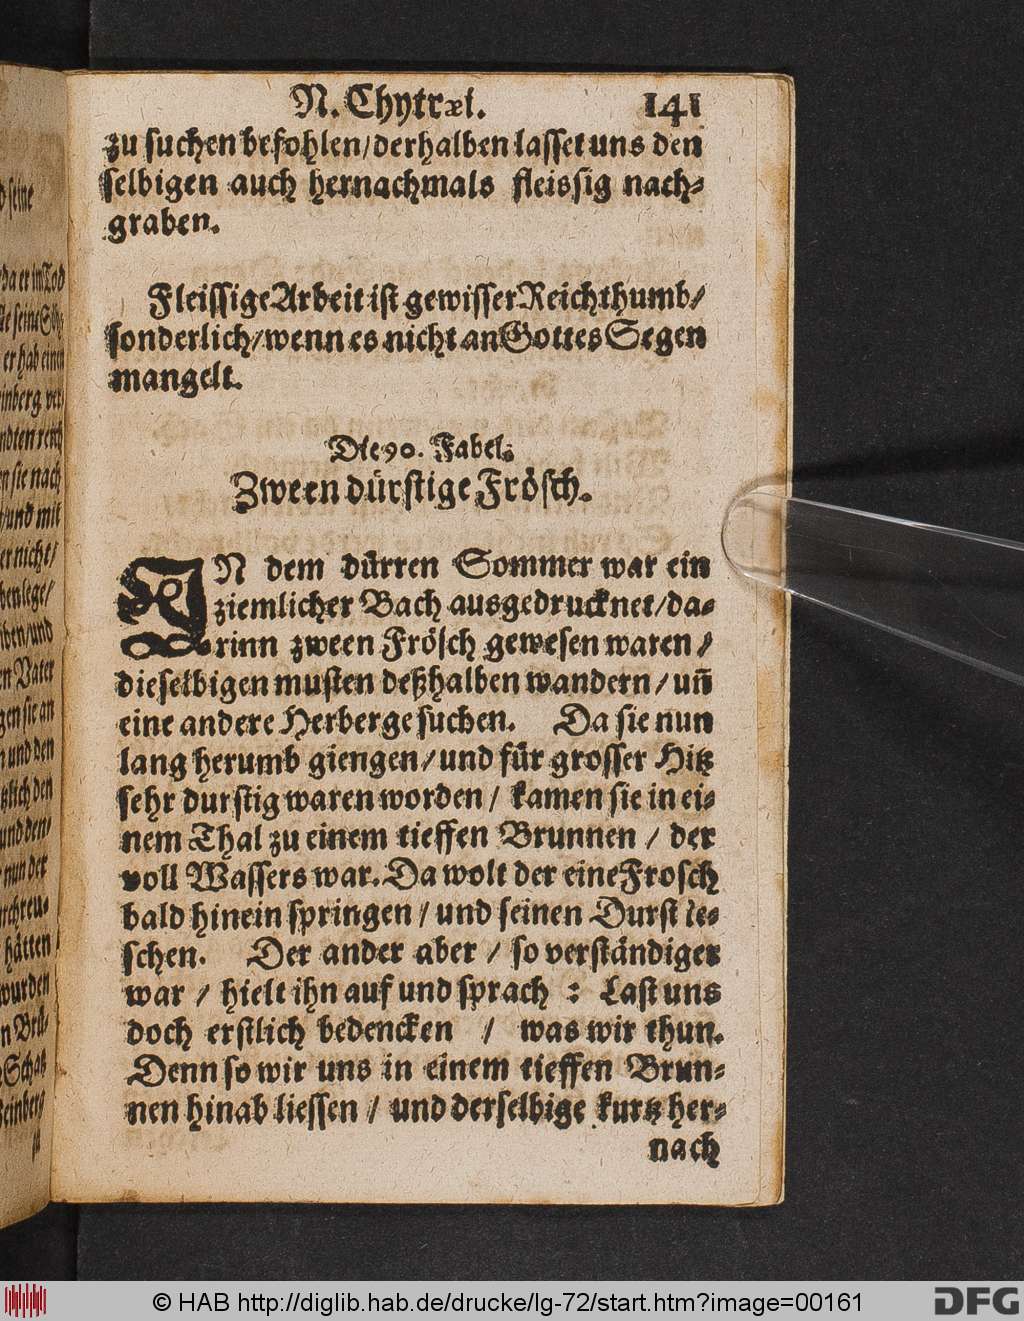 N. Chytræi. 141
zu suchen befohlen/derhalben lasset uns den
selbigen auch hernachmals fleissig nach-
graben.
Fleissige Arbeit ist gewisser Reichthumb/
sonderlich/wenn es nicht an Gottes Segen
mangelt.
Die 90. Fabel.
Zween dürstige Frösch.
IN dem dürren Sommer war ein
ziemlicher Bach ausgedrucknet/da-
rinn zween Frösch gewesen waren/
dieselbigen musten deßhalben wandern/uñ
eine andere Herberge suchen. Da sie nun
lang herumb giengen/und für grosser Hitz
sehr durstig waren worden/ kamen sie in ei-
nem Thal zu einem tieffen Brunnen / der
voll Wassers war. Da wolt der eine Frosch
bald hinein springen/und seinen Durst le-
schen. Der ander aber / so verständiger
war / hielt ihn auf und sprach : Last uns
doch erstlich bedencken / was wir thun.
Denn so wir uns in einem tieffen Brun-
nen hinab liessen / und derselbige kurtz her-
nach
d seine
da er im Tod
er hab einen
nach
und mit
er nicht/
Vater
sie an
und den
den
nun der
hätten
wurden
Schatz
© HAB http://diglib.hab.de/drucke/lg-72/start.htm?image=00161
DFG